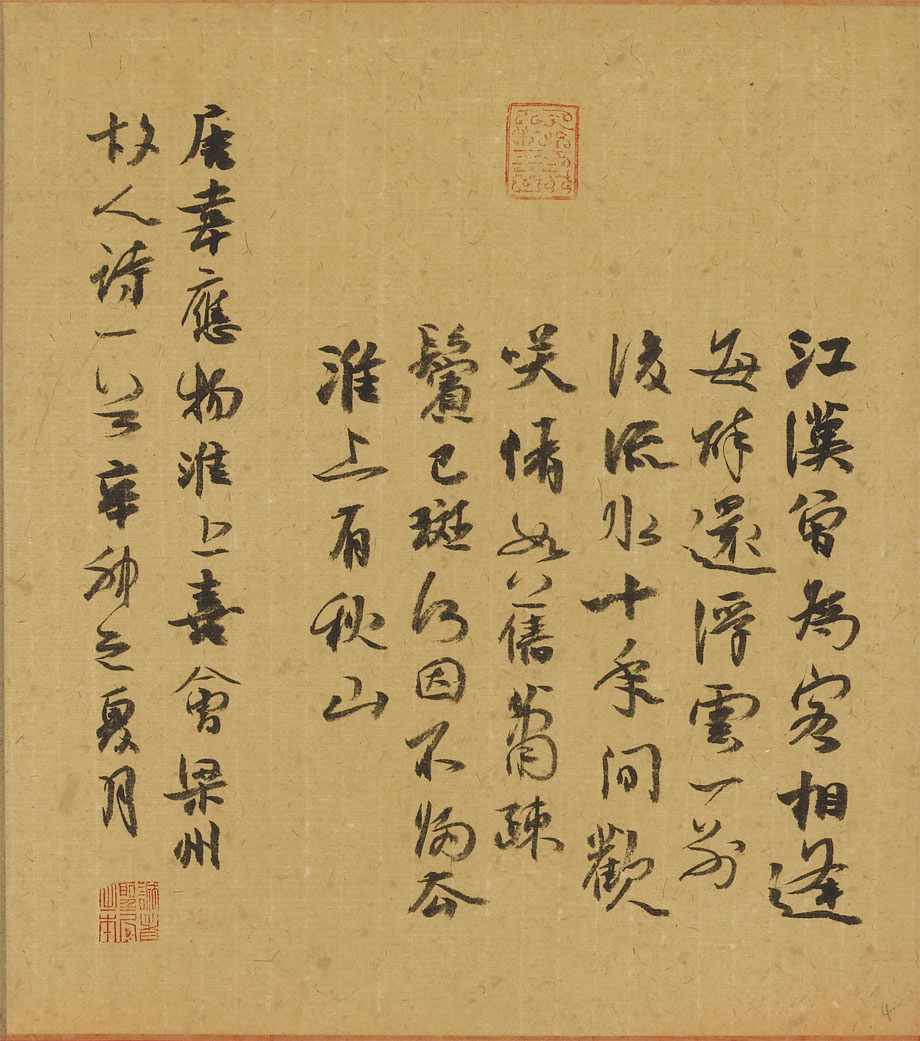 江漢曾為客相逢
每醉還浮雲一別
後流水十年間歡
咲情如舊蕭疎
鬢已斑何因不歸去
淮上有秋山
唐韋應物淮上喜會梁州
故人詩一首辛卯之夏月